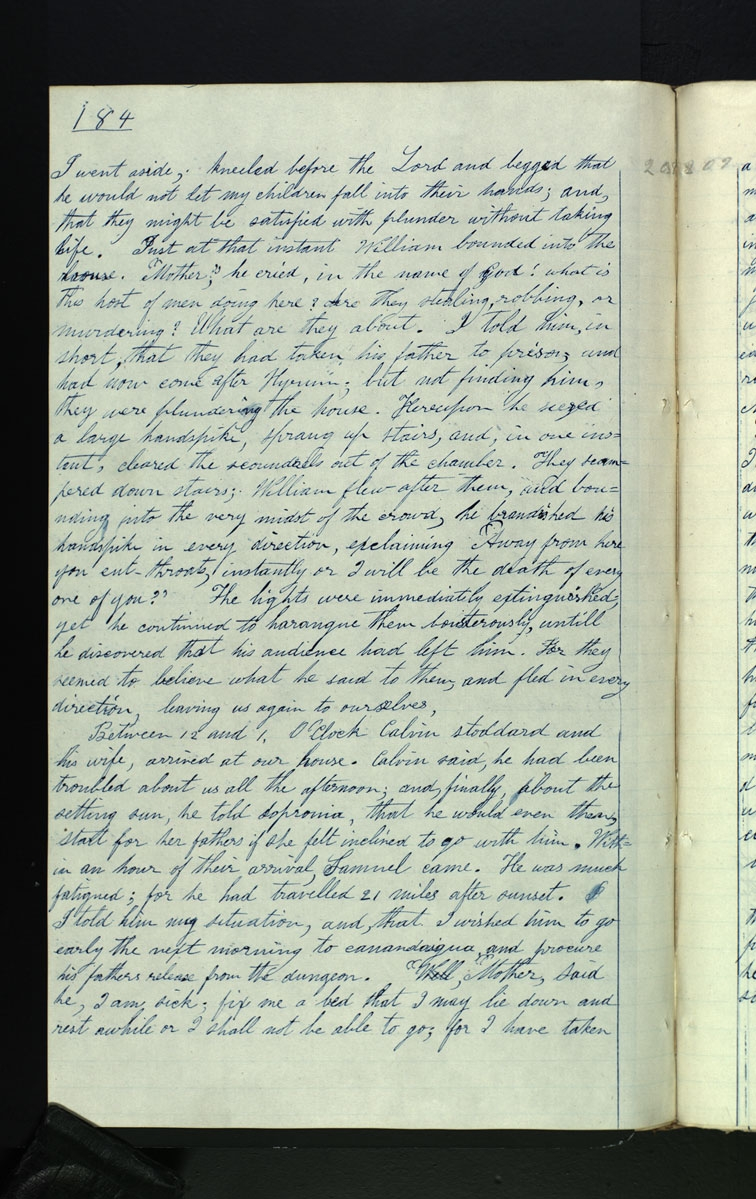 184
I went aside, kneeled before the Lord and begged that
he would not let my children fall into their hands; and,
that they might be satisfied with plunder without taking
life. Just at that instant William bounded into the
house. Mother," he cried, in the name of God! what is
this host of men doing here? Are they steling, robbing, or
murdering? What are they about. I told him, in
short, that they had taken his father to prison; and
had now come after Hyrum; but not finding him,
they were plundering the house. Hereupon he seezed
a large handspike, sprang up stairs, and, in one ins=
tant, cleared the scoundrels out of the chamber. They scam=
pered down stairs; William flew after them, and bou=
nding into the very midst of the crowd, he brandished his
handspike in every direction, exclaiming "Away from here
you cut-throats, instantly or I will be the death of every
one of you?" The lights were immediatly extinguished,
yet he continued to harangue them boisterously, untill
he discovered that his audience had left him. For they
seemed to believe what he said to them, and fled in every
direction, leaving us again to ourselves,
Between 12 and 1, O'Clock Calvin stoddard and
his wife, arrived at our house. Calvin said, he had been
troubled about us all the afternoon; and, finally, about the
setting sun, he told sopronia, that he would even then,
start for her fathers if she felt inclined to go with him. With=
in an hour of their arrival, Samuel came. He was much
fatigued; for he had travelled 21 miles after sunset.
I told him my situation, and, that I wished him to go
early the next morning to canandaigua, and procure
his fathers release from the dungeon. "Well, Mother, said
he, I am sick; fix me a bed that I may lie down and
rest awhile or I shall not be able to go; for I have taken